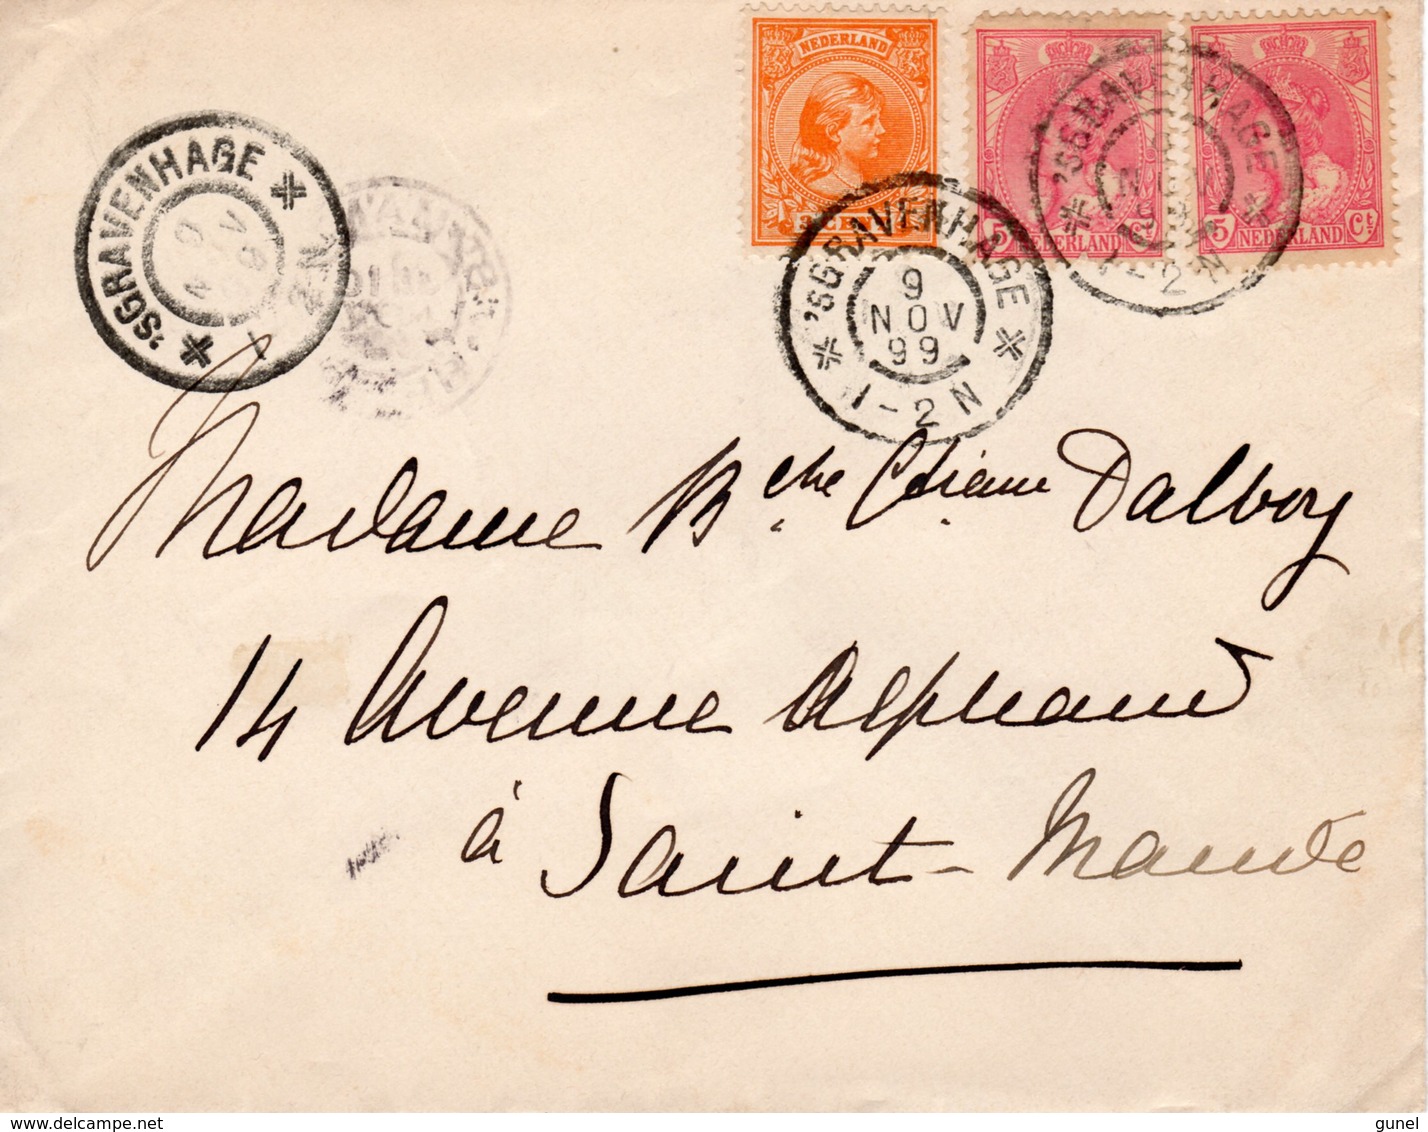 NEDERLAND
5 Ct
NEDERLAND
5 Ct
NEDERLAND
'SGRAVENHAGE
'SGRAVENHAGE
9
NOV
99
1-2N
'SGRAVENHAGE
1-2N
Madame Bche Chiam Dalboy
14 Avenue Alphand
à Saint-Mandé
© delcampe.net
gunel